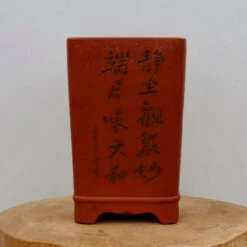 静坐觀衆妙
端居味天和